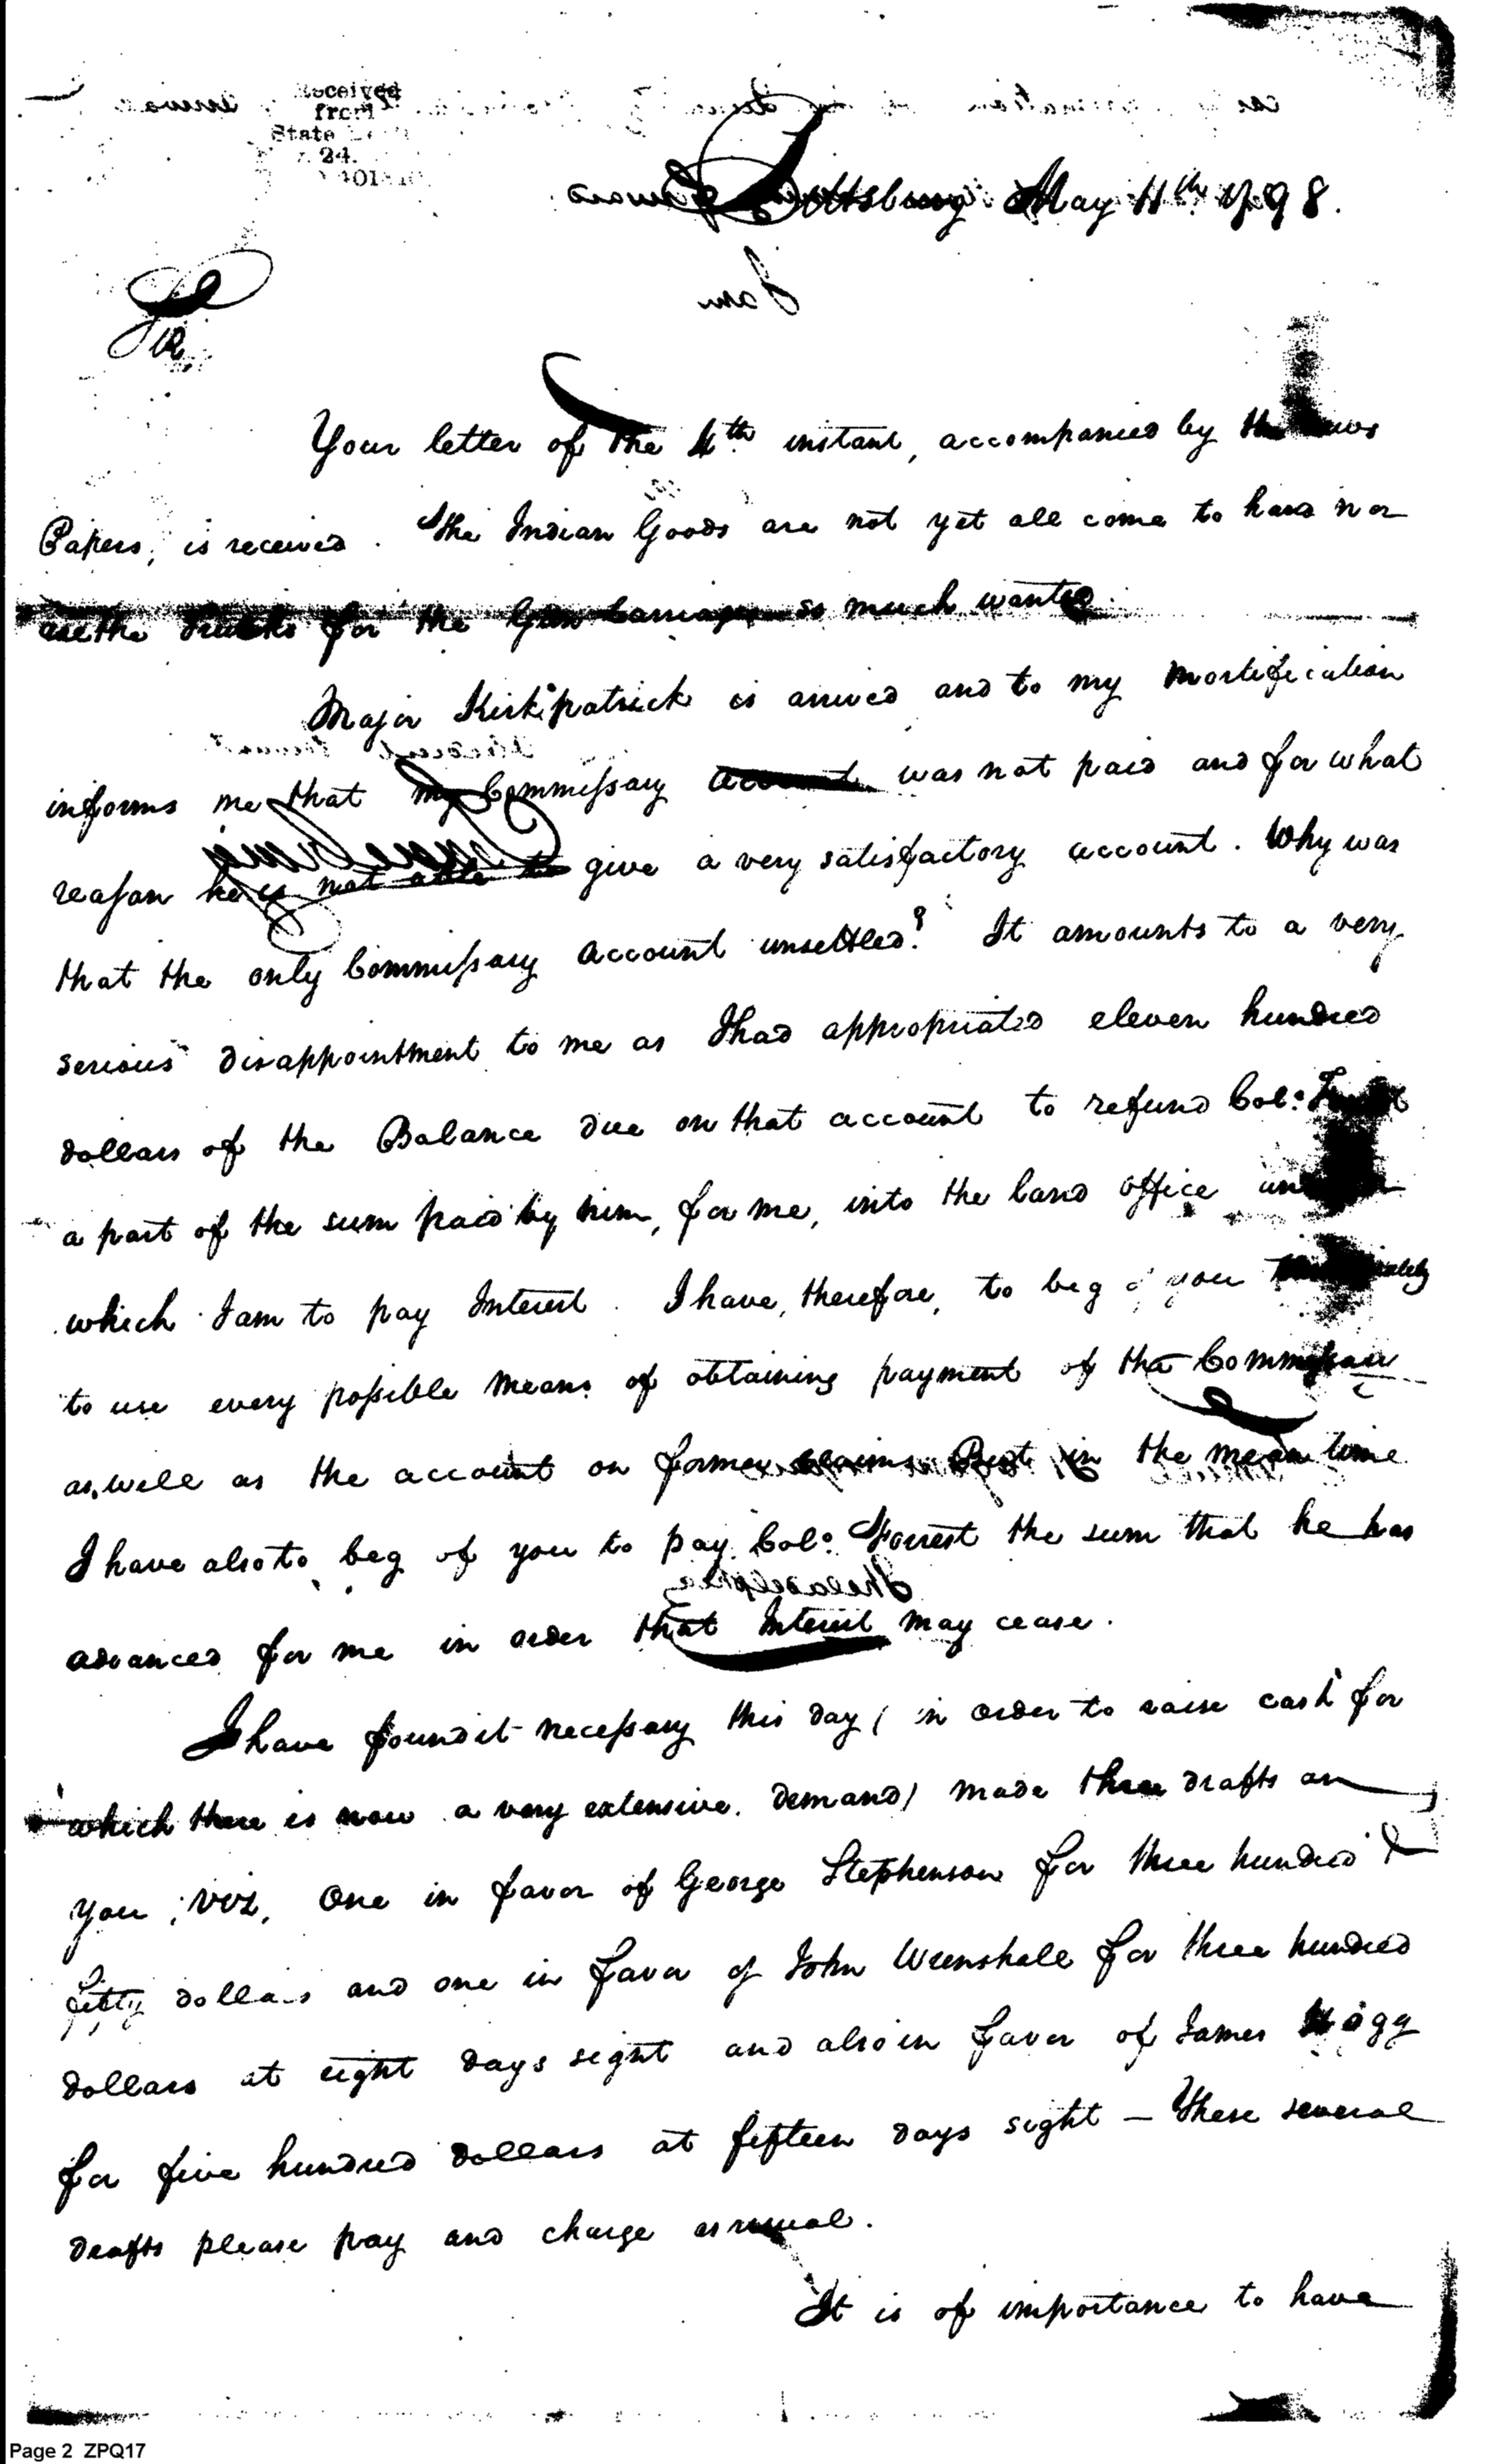 Received
from
State
24.
Pittsburg May 11th 1798.
Sir
Your letter of the 4th instant, accompanied by the news
Papers, is received. The Indian Goods are not yet all come to hand nor
are the Trucks for the Gun Carriages so much wanted.
Major Kirkpatrick is arrived and to my mortification
informs me that my Commissary account was not paid and for what
reason he is not able to give a very satisfactory account. Why was
that the only Commissary account unsettled? It amounts to a very
serious disappointment to me as I had appropriated eleven hundred
dollars of the Balance due on that account to refund Col:
a part of the sum paid by him, for me, into the land office
which I am to pay Interest. I have, therefore, to beg of you
to use every possible means of obtaining payment of the
as well as the account on former claims. But in the mean time
I have also to beg of you to pay Colo. Forrest the sum that he has
advanced for me in order that Interest may cease.
I have found it necessary this day (in order to raise cash for
which there is now a very extensive demand) made three drafts on
you; viz, One in favor of George Stephenson for three hundred &
fifty dollars and one in favor of John Wrenshall for three hundred
dollars at eight days sight and also in favor of James Hogg
for five hundred dollars at fifteen days sight — These several
drafts please pay and charge as usual.
It is of importance to have
Page 2 ZPQ17